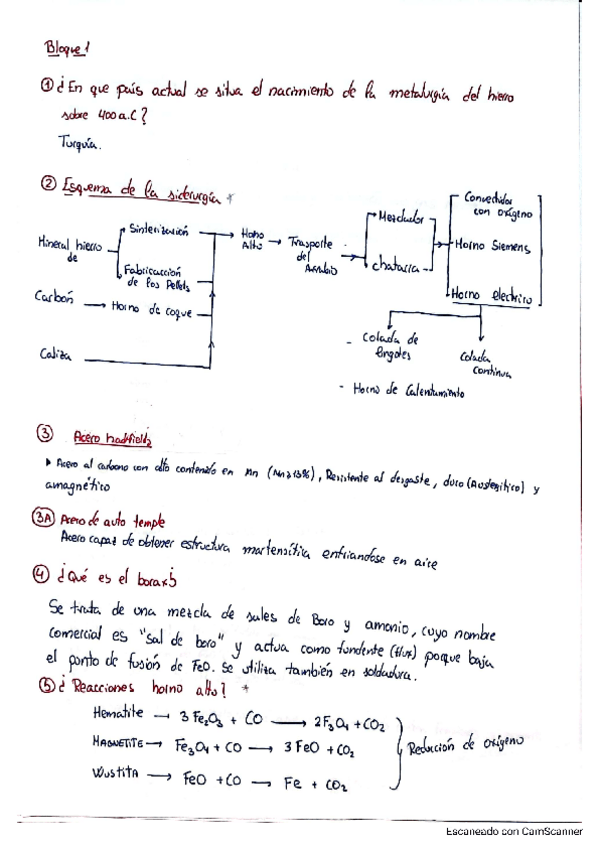 Bloque 1
① ¿En que país actual se situa el nacimiento de la metalurgia del hierro
sobre 400 a.C?
Turquía.
② Esquema de la siderurgia *
Mineral hierro
de
Sinterización
Fabricacción
de los Pellets
Carbón → Horno de coque
Caliza
Horno
Alto
Trasporte
del
Arrabio
Mezclador
chatarra
Convertidor
con oxígeno
Horno Siemens
Horno electrico
- Colada de
lingoles
Colada
continua
- Horno de Calentamiento
③ Acero hadfield
▸ Acero al carbono con alto contenido en mn (Mn≥13%), Resistente al desgaste, duro (Austenitico) y
amagnético
③A Acero de auto temple
Acero capaz de obtener estructura martensítica enfriandose en aire
④ ¿Qué es el borax?
Se trata de una mezcla de sales de Boro y amonio, cuyo nombre
comercial es "sal de boro" y actua como fundente (flux) porque baja
el ponto de fusión de FeO. Se utiliza también en soldadura.
⑤ ¿Reacciones horno alto? *
Hematite → 3 Fe₂O₃ + CO → 2F₃O₄ + CO₂
MAGNETITE → Fe₃O₄ + CO → 3 FeO + CO₂
Wustita → FeO + CO → Fe + CO₂
Reducción de oxígeno
Escaneado con CamScanner